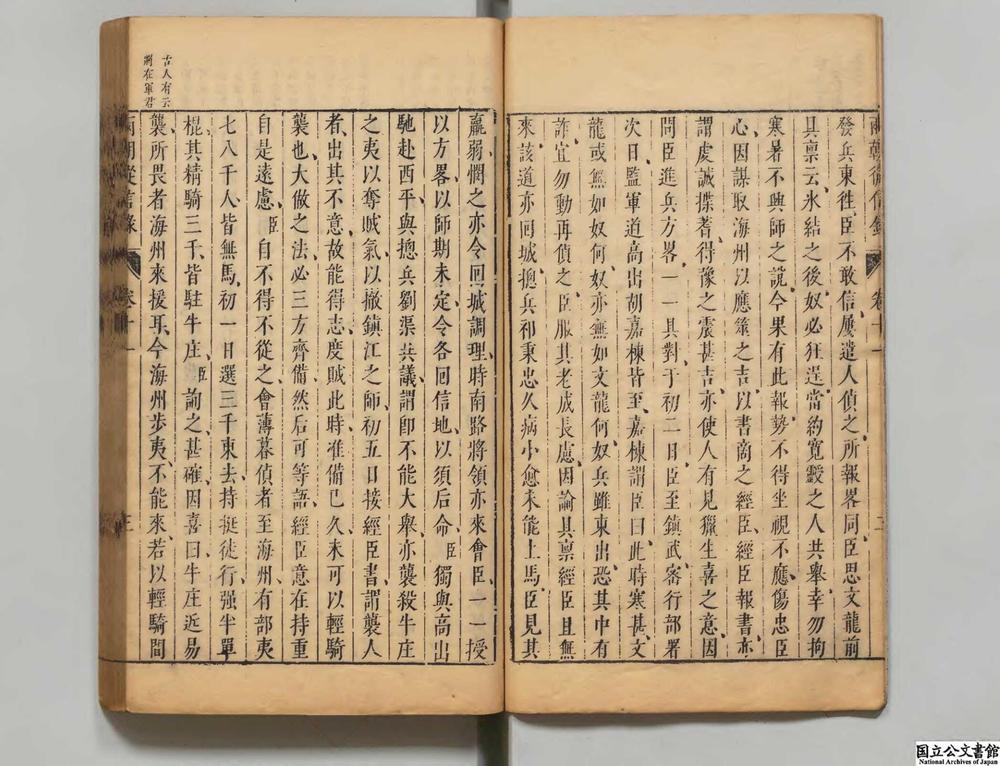 兩朝從信錄 卷十一 三
發兵東徃臣不敢信屢遣人偵之所報畧同臣思文龍前
具禀云氷結之後奴必狂逞當約寛靉之人共舉幸勿拘
寒暑不興師之說今果有此報勢不得坐視不應傷忠臣
心因謀取海州以應筮之吉以書啇之經臣經臣報書亦
謂處誠揲蓍得豫之震甚吉亦使人有見獵生喜之意因
問臣進兵方畧一一具對于初二日臣至鎮武審行部署
次日監軍道高出胡嘉棟皆至嘉棟謂臣曰此時寒甚文
龍或無如奴何奴亦無如文龍何奴兵雖東出恐其中有
詐宜勿動再偵之臣服其老成長慮因論具禀經臣且無
來該道亦囘城摠兵祁秉忠久病小愈未能上馬臣見其
羸弱憫之亦令囘城調理時南路將領亦來會臣一一授
以方畧以師期未定令各囘信地以須后命臣獨與高出
馳赴西平與摠兵劉渠共議謂即不能大舉亦襲殺牛庄
之夷以奪賊氣以撤鎮江之師初五日接經臣書謂襲人
者出其不意故能得志度賊此時准備已久未可以輕騎
襲也大做之法必三方齊備然后可等語經臣意在持重
自是遠慮臣自不得不從之會薄暮偵者至海州有部夷
七八千人皆無馬初一日選三千東去持挺徒行强半單
棍其精騎三千皆駐牛庄臣詢之甚確因喜曰牛庄近易
襲所畏者海州來援耳今海州步夷不能來若以輕騎間
兩朝從信錄 卷十一 三
古人有云
將在軍君
国立公文書館
National Archives of Japan